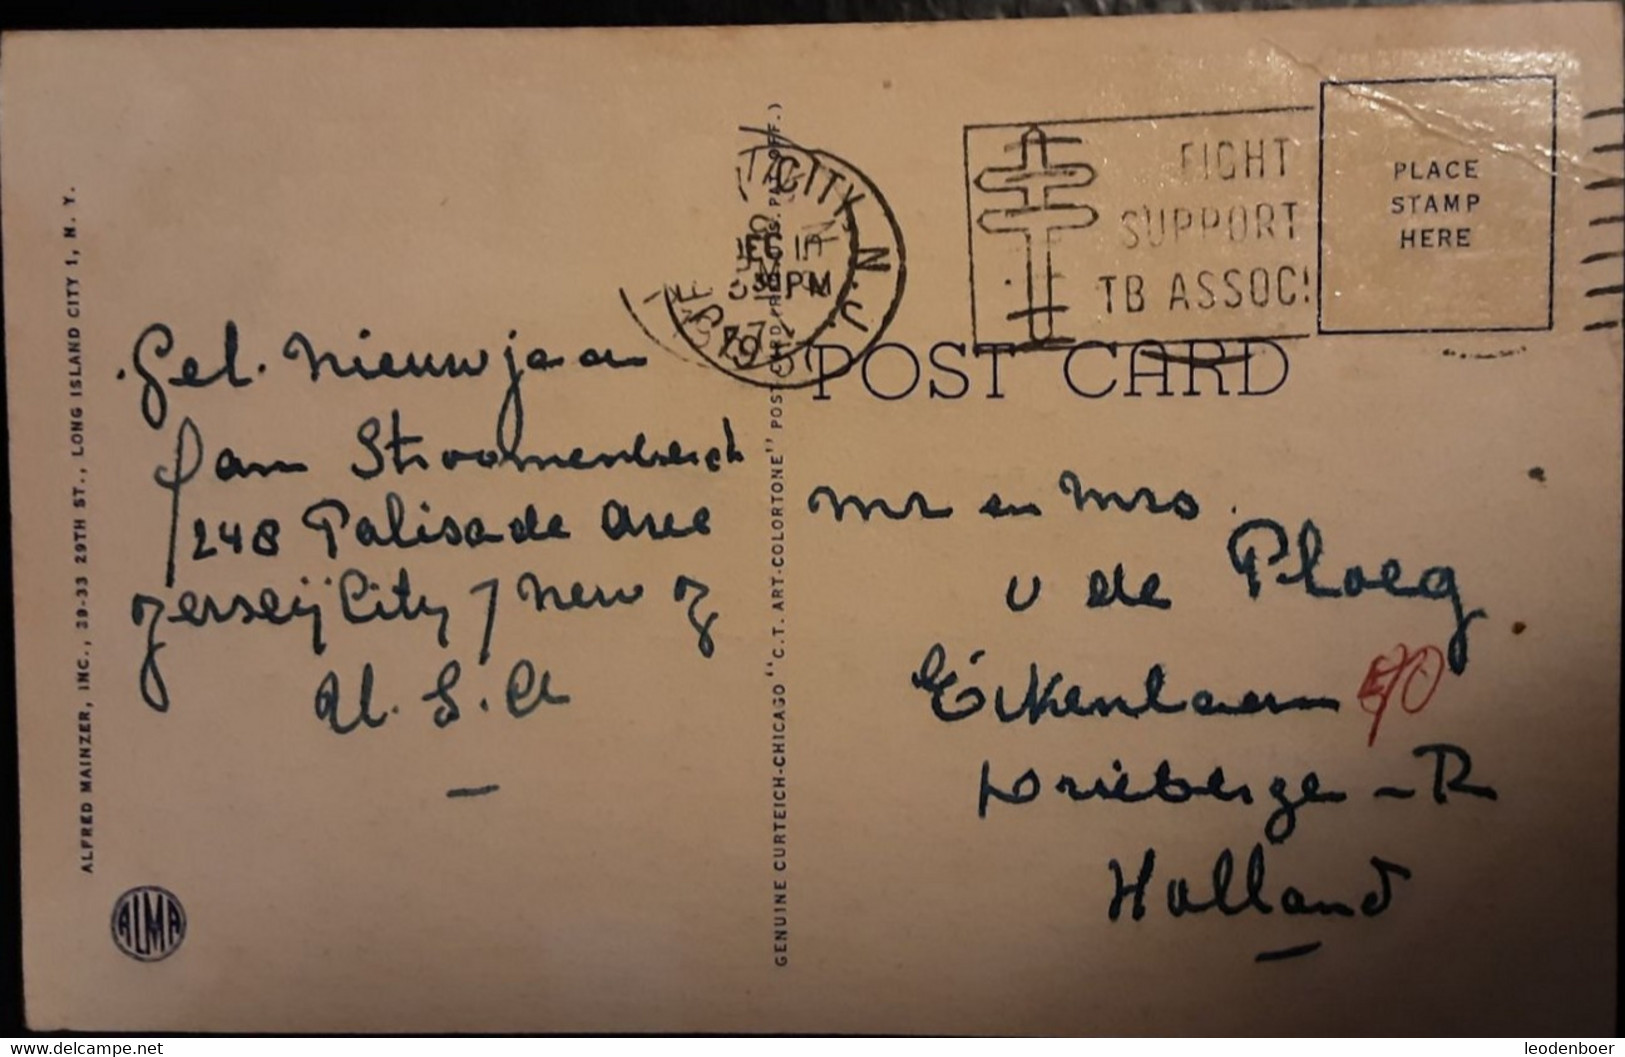 Gel. nieuwjaar
fam Stroomenbergh
248 Palisade Ave
Jerseij City 7 New J
U. S. A
ALFRED MAINZER, INC., 39-33 29TH ST., LONG ISLAND CITY 1, N. Y.
ALMA
GENUINE CURTEICH-CHICAGO "C.T. ART-COLORTONE" POST CARD
CITY, N.J.
PM
FIGHT
SUPPORT
TB ASSOC
PLACE
STAMP
HERE
POST CARD
Mr en Mrs.
v de Ploeg
Eikenlaan 70
Driebergen - R
Holland
www.delcampe.net
leodenboer